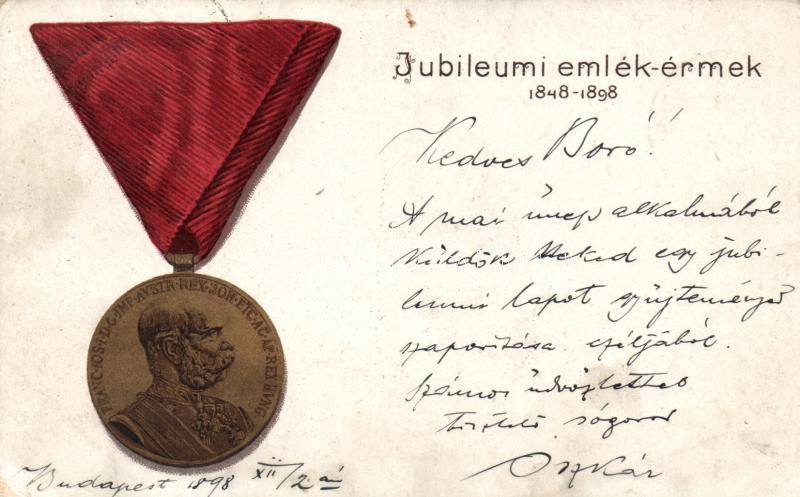 Jubileumi emlék-érmek
1848-1898
Kedves Boró!
A mai ünnep alkalmából
küldök Neked egy jubi-
leumi lapot gyűjteményed
szaporítása céljából.
Számos üdvözlettel
tisztelő sógorod
Oszkár
FRANC·IOS·I·D·G·IMP·AVSTR·REX·BOH·ETC·AC·AP·REX·HVNG
Budapest 1898 XII/2-án